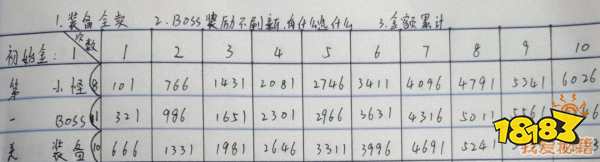 1.装备全卖 2.BOSS奖励不刷新,有什么选什么 3.金额累计
初始金:1 次数 1 2 3 4 5 6 7 8 9 10
第 小怪 8 101 766 1431 2081 2746 3411 4096 4791 5341 6026
一 BOSS 1 321 986 1651 2301 2966 3631 4316 5011 556
关 装备 10 666 1331 1981 2646 3311 3996 4691 5241
18183